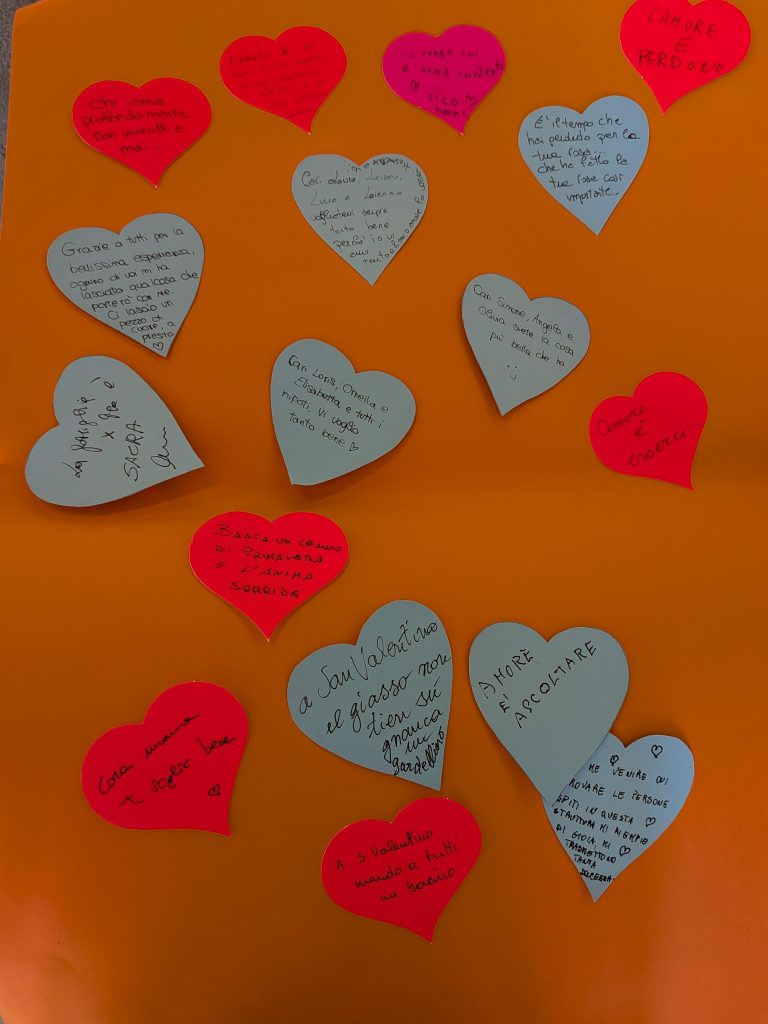 L'AMORE
È
PERDONO
IO VENGO QUI
E SONO CONTENTA
L'AMORE È UN
Chi ama
profondamente
non invecchia
mai..
È il tempo che
hai perduto per la
tua rosa...
che ha fatto la
tua rosa così
importante...
Cari
Lucio e Lorenno
vogliatevi sempre
tanto bene
perché io vi
Grazie a tutti per la
bellissima esperienza,
ognuno di voi mi ha
lasciato qualcosa che
porterò con me.
Ci lascio un
pezzo di
cuore, a
presto
Cari Simone, Angela e
Olivia siete la cosa
più bella che ho
:)
Cari Loris, Ornella e
Elisabetta e tutti i
nipoti, Vi voglio
tanto bene
La famiglia
x me è
SACRA
amore
è
esserci...
BASTA UN CENNO
DI PRIMAVERA
E L'ANIMA
SORRIDE
a San Valentino
el giasso non
tien sú
gnanca
un
gardellino
AMORE
E'
ASCOLTARE
Cara mamma
t voglio bene
ME VENIRE QUI
TROVARE LE PERSONE
OSPITI IN QUESTA
STRUTTURA MI RIEMPIE
DI GIOIA, MI
TRASMETTONO
TANTA
DOLCEZZA.
A S. Valentino
mando a tutti
un bacino